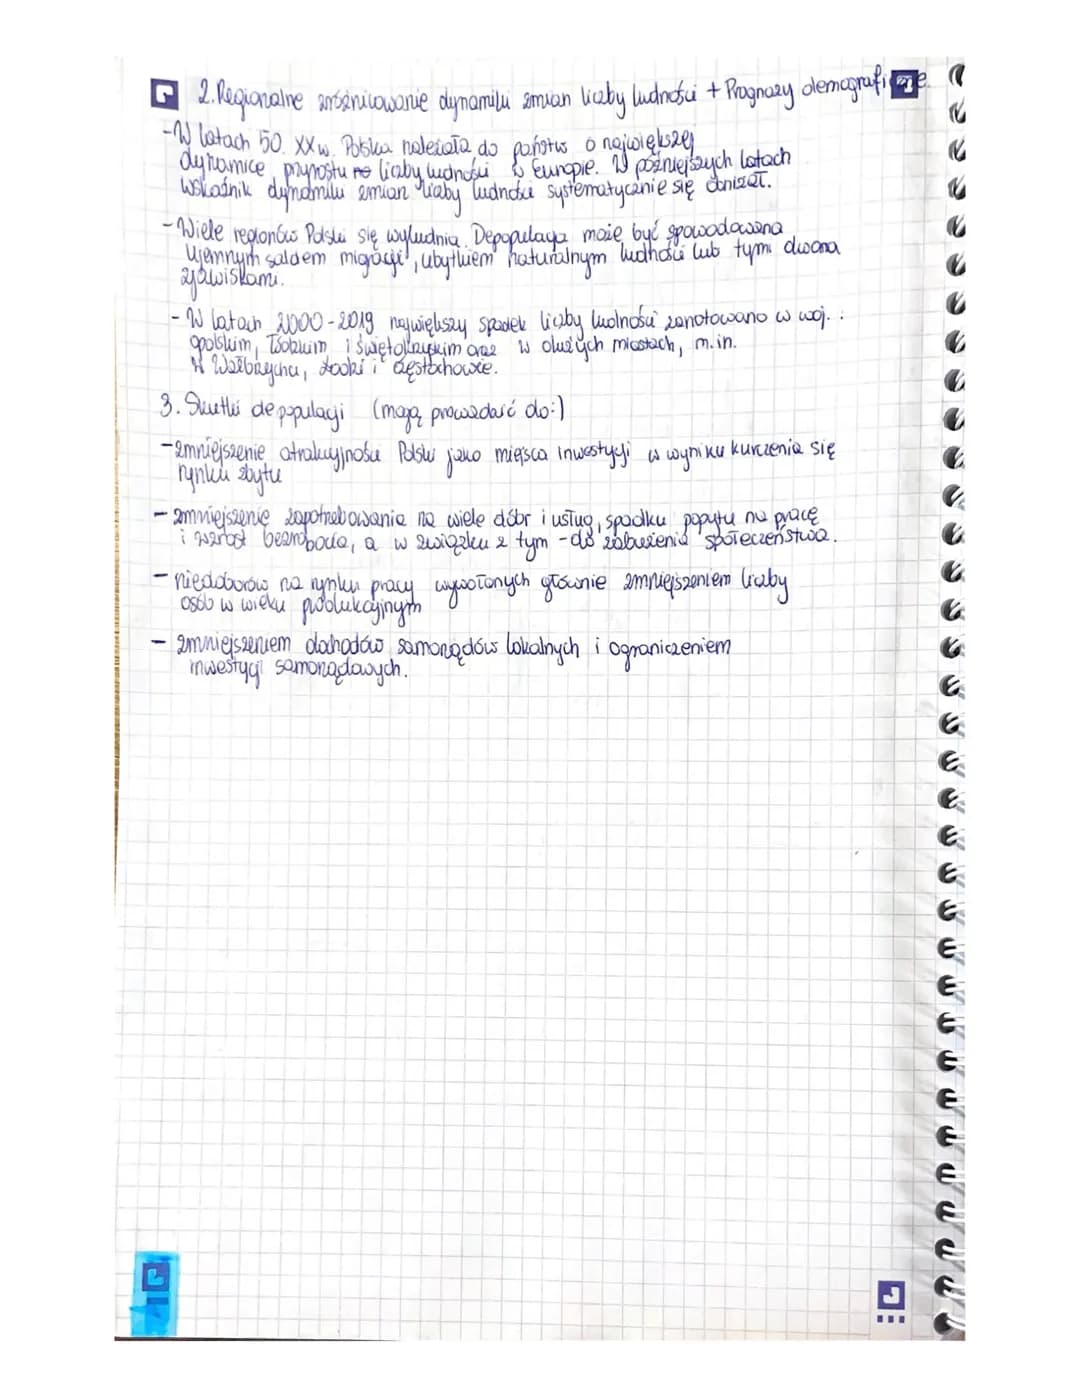 2. Regionalne zróżnicowanie dynamiki zmian liczby ludności + Prognozy demograficzne.
-W latach 50. XX w. Polska należała do państw o największej
dynamice przyrostu liczby ludności w Europie. W późniejszych latach
wskaźnik dynamiki zmian liczby ludności systematycznie się obniżał.
-Wiele regionów Polski się wyludnia. Depopulacja może być spowodowana
ujemnym saldem migracji, ubytkiem naturalnym ludności lub tymi dwoma
zjawiskami.
- W latach 2000-2019 największy spadek liczby ludności zanotowano w woj. :
opolskim, łódzkim i świętokrzyskim oraz w dużych miastach, m.in.
w Wałbrzychu, Łodzi i Częstochowie.
3. Skutki depopulacji (mogą prowadzić do:)
-zmniejszenie atrakcyjności Polski jako miejsca inwestycji w wyniku kurczenia się
rynku zbytu
- zmniejszenie zapotrzebowania na wiele dóbr i usług, spadku popytu na pracę
i wzrost bezrobocia, a w związku z tym - do zubożenia społeczeństwa.
- niedoborów na rynku pracy wywołanych głównie zmniejszeniem liczby
osób w wieku produkcyjnym
- zmniejszeniem dochodów samorządów lokalnych i ograniczeniem
inwestycji samorządowych.